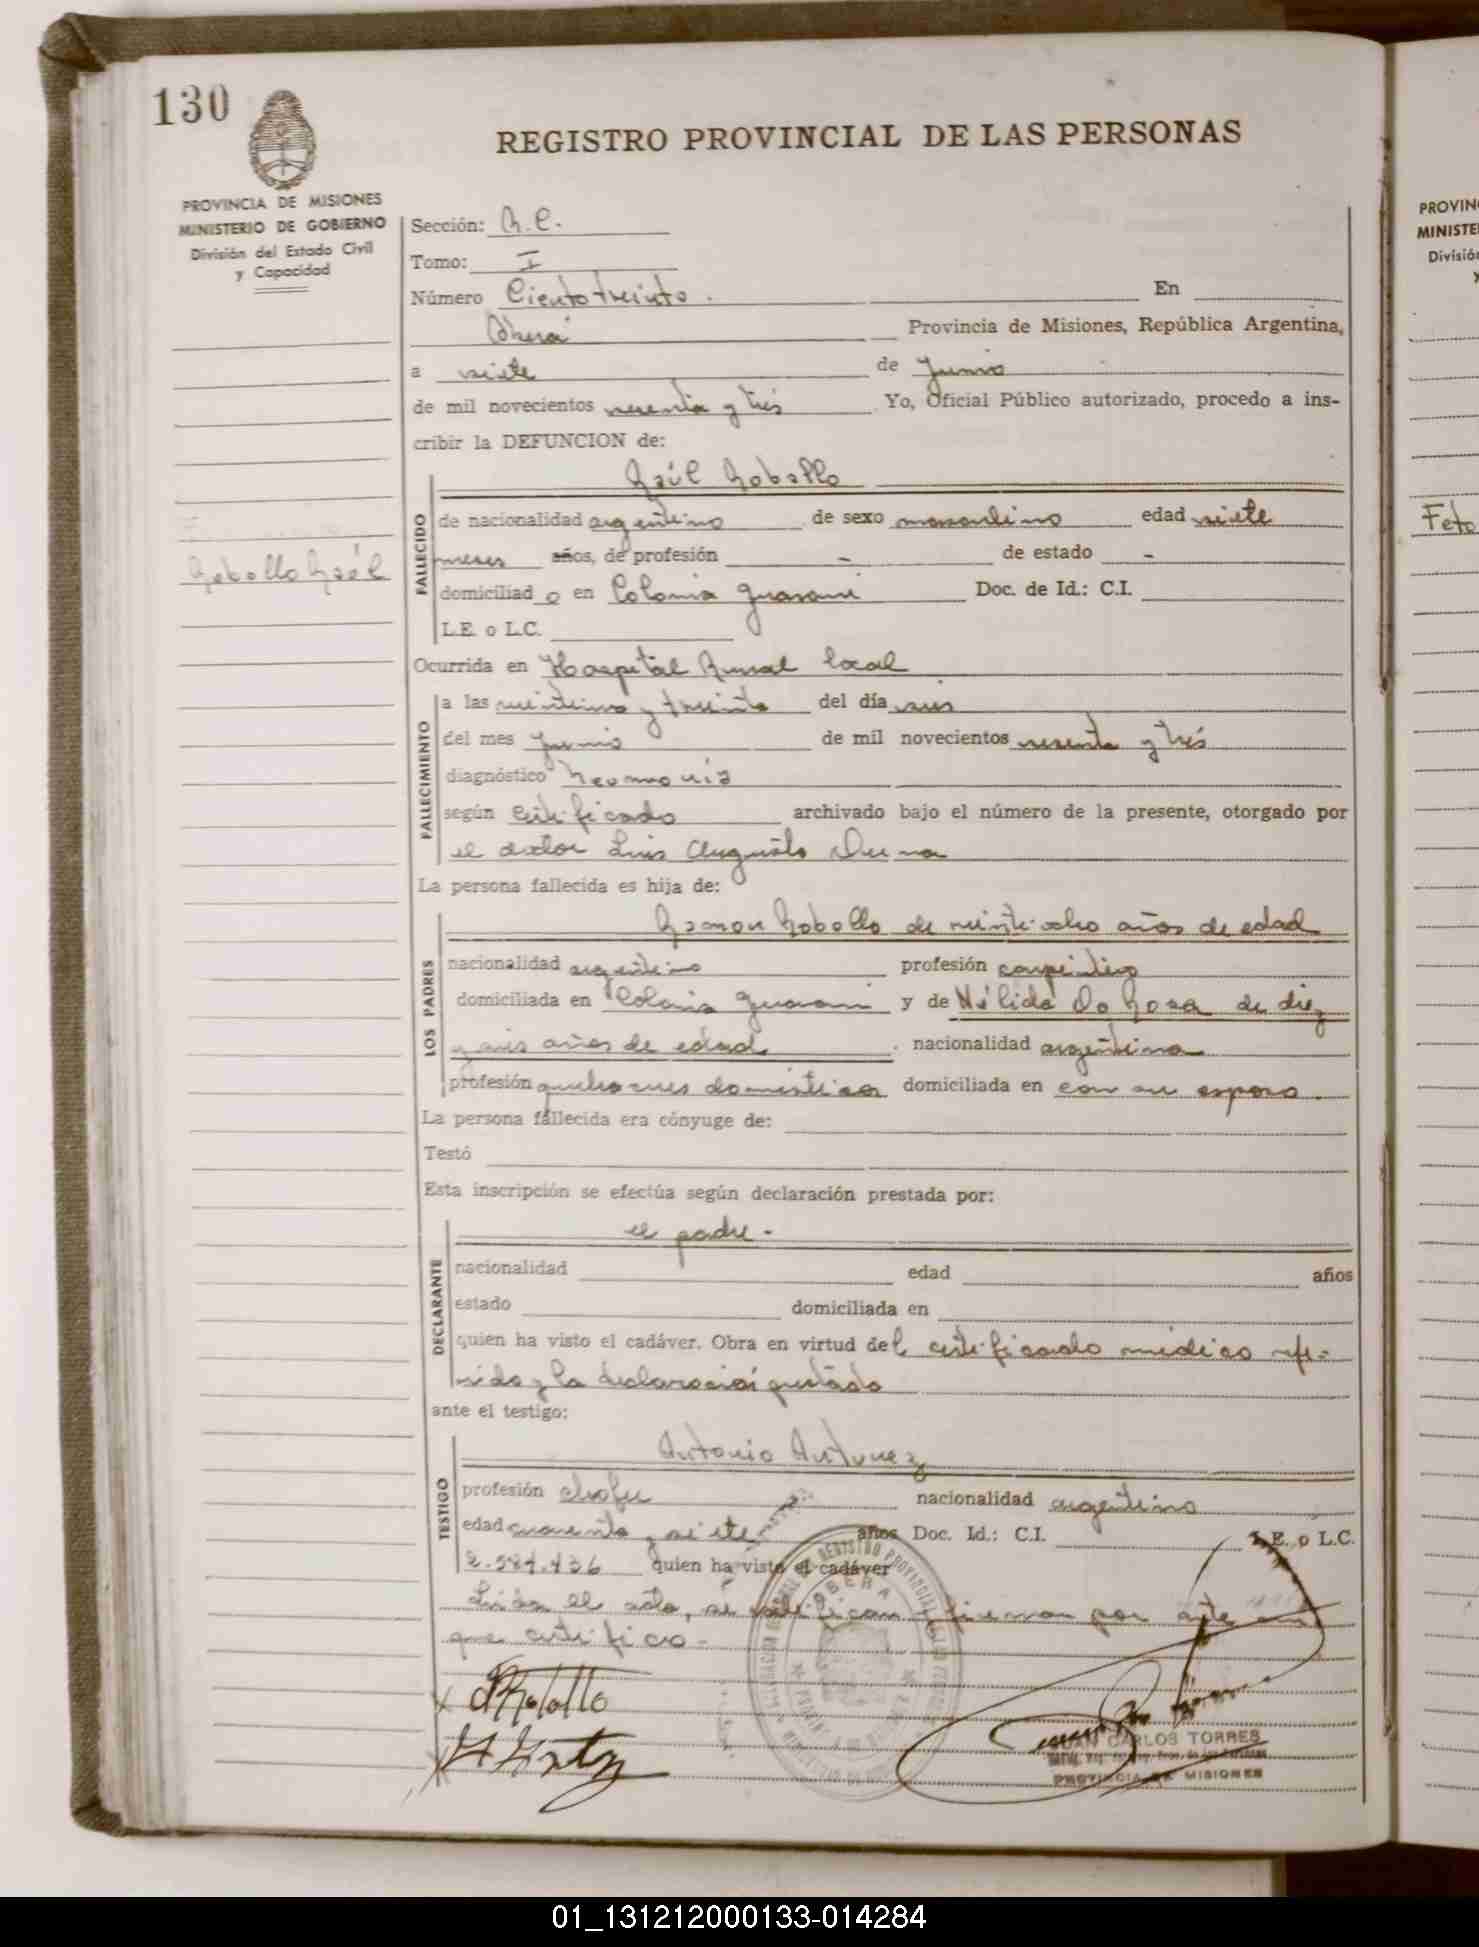 130
REGISTRO PROVINCIAL DE LAS PERSONAS
PROVINCIA DE MISIONES
MINISTERIO DE GOBIERNO
División del Estado Civil
y Capacidad
Sección:
Tomo: I
Número Ciento treinta. En
Oberá Provincia de Misiones, República Argentina,
a siete de junio
de mil novecientos sesenta y tres Yo, Oficial Público autorizado, procedo a ins-
cribir la DEFUNCION de:
Raúl Robollo
FALLECIDO
de nacionalidad argentino de sexo masculino edad siete
meses años, de profesión - de estado -
Robollo Raúl
domiciliado en Colonia Guaraní Doc. de Id.: C.I.
L.E. o L.C.
Ocurrida en Hospital Rural local
FALLECIMIENTO
a las veintiuna y treinta del día seis
del mes junio de mil novecientos sesenta y tres
diagnóstico Neumonía
según certificado archivado bajo el número de la presente, otorgado por
el doctor Luis Augusto
La persona fallecida es hija de:
LOS PADRES
Ramon Robollo de veintiocho años de edad
nacionalidad argentino profesión carpintero
domiciliada en Colonia Guaraní y de Nélida Da Rosa de diez
y seis años de edad. nacionalidad argentina
profesión quehaceres domésticos domiciliada en con su esposo.
La persona fallecida era cónyuge de:
Testó
Esta inscripción se efectúa según declaración prestada por:
DECLARANTE
el padre -
nacionalidad edad años
estado domiciliada en
quien ha visto el cadáver. Obra en virtud del certificado médico refe-
rido y la declaración prestada
ante el testigo:
TESTIGO
Antonio Antunez
profesión chofer nacionalidad argentino
edad cuarenta y siete años Doc. Id.: C.I. L.E. o L.C.
quien ha visto el cadáver
Leída el acta, se ratifican y firman por ante mí
que certifico -
OBERA
JUAN CARLOS TORRES
PROVINCIA DE MISIONES
PROVIN
MINISTE
Divisió
Feto
01_131212000133-014284